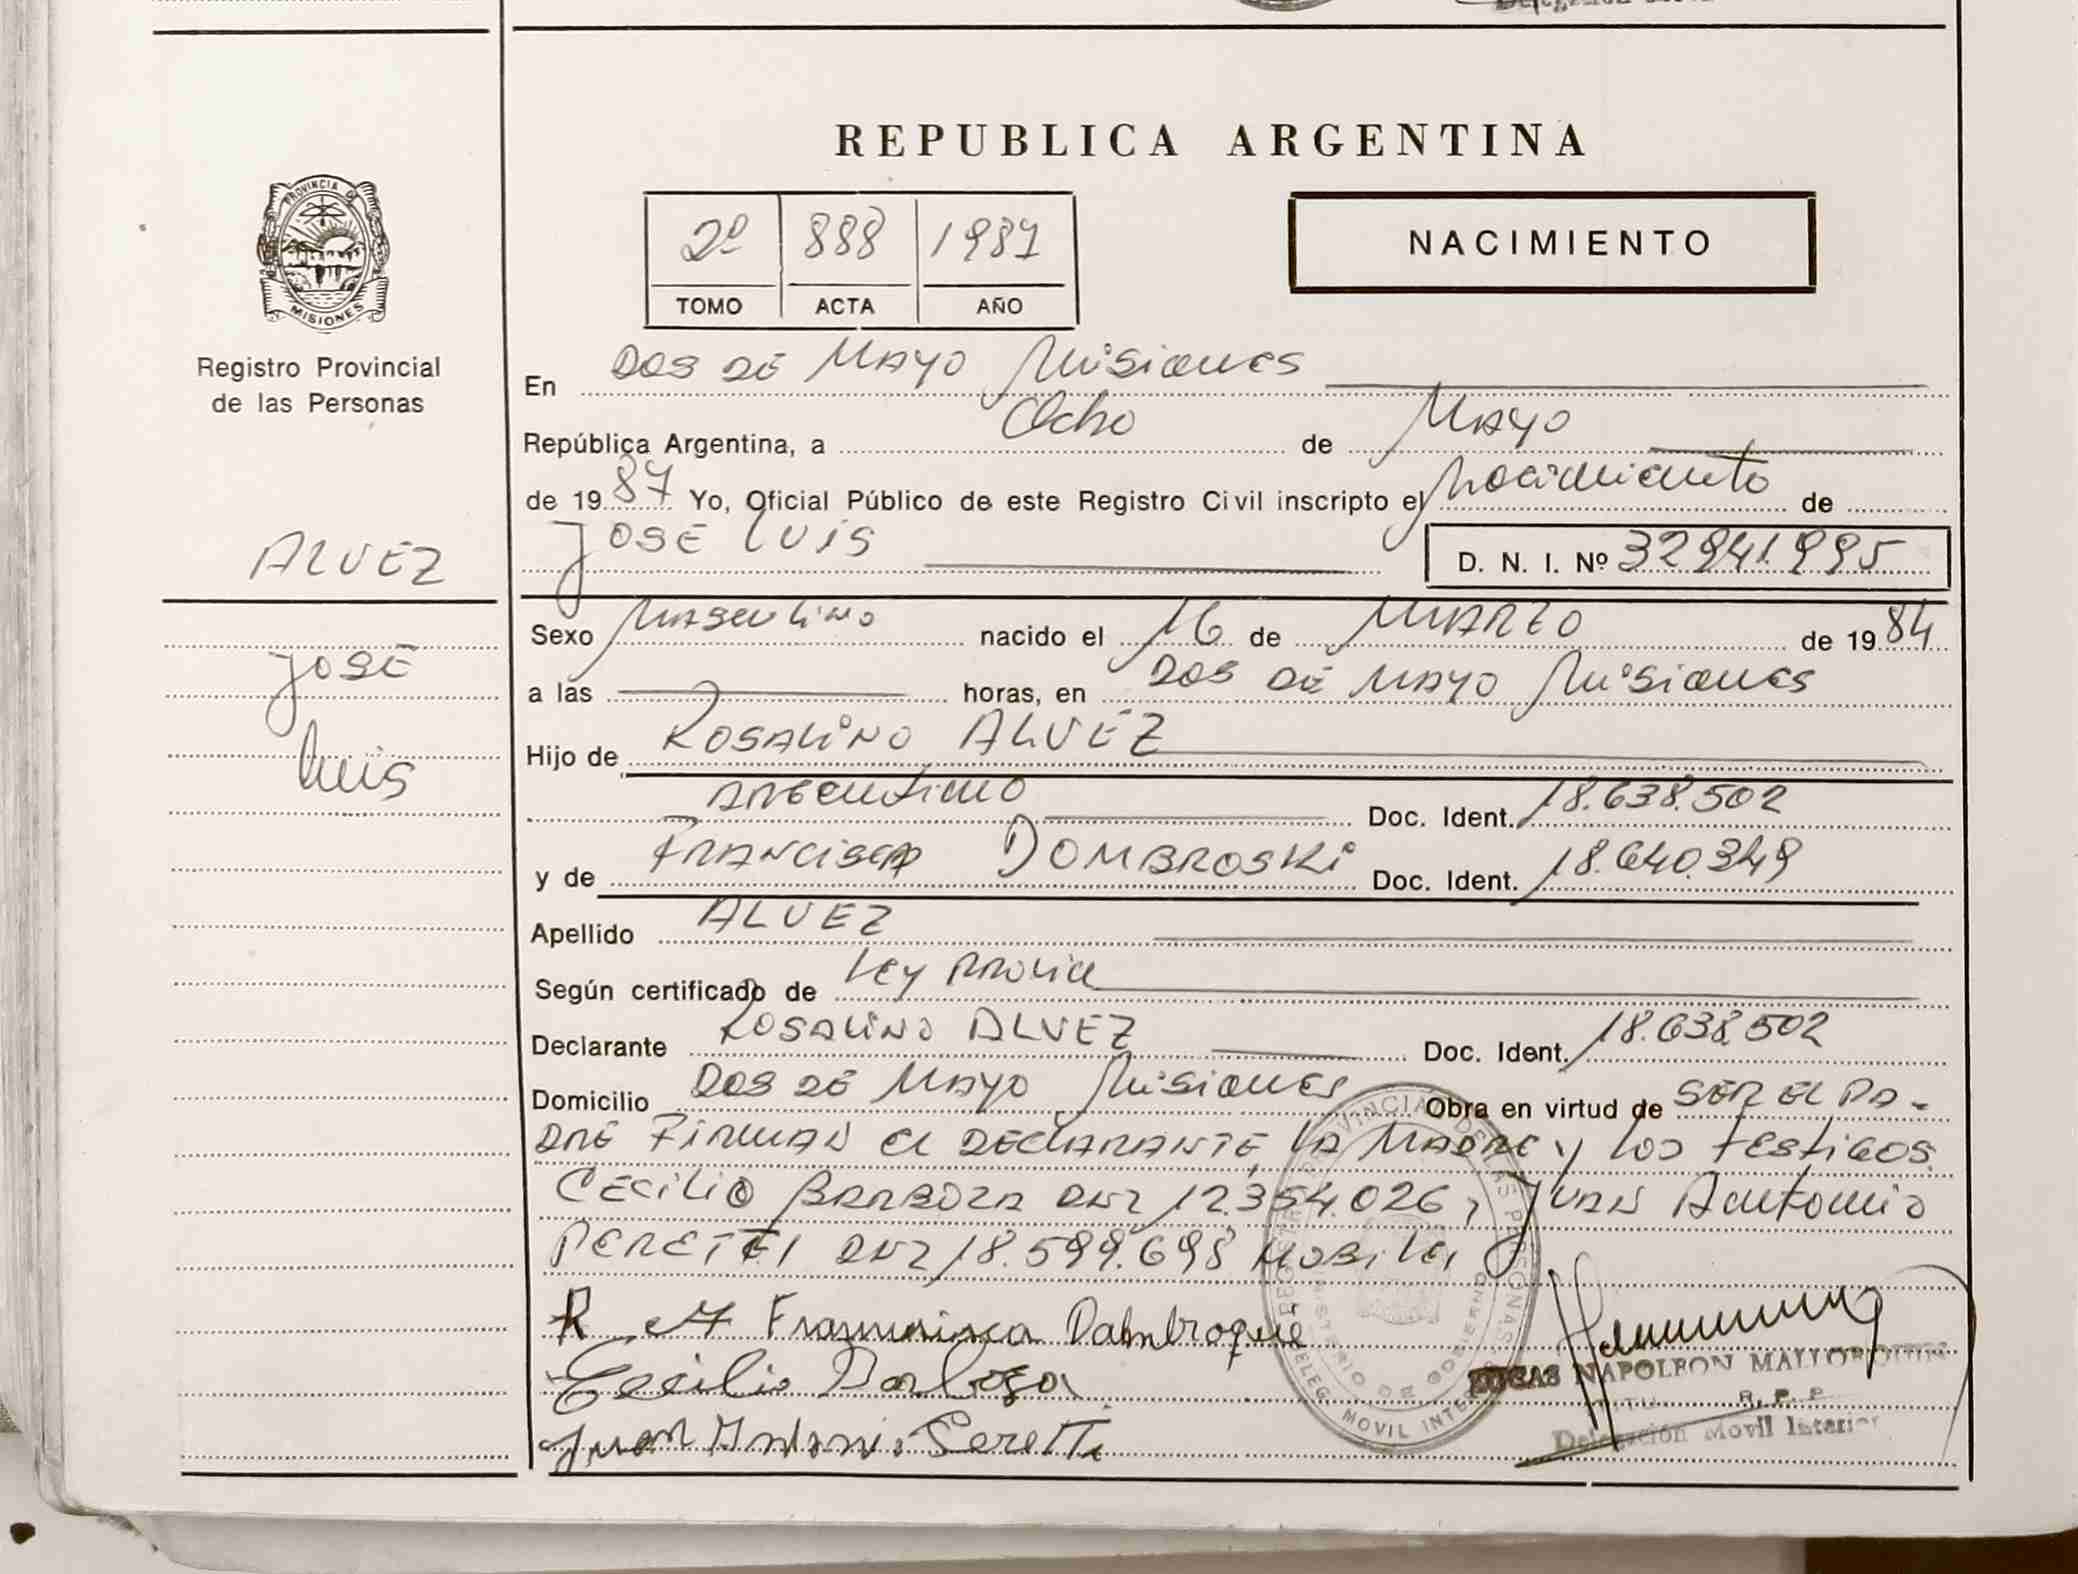 REPUBLICA ARGENTINA
PROVINCIA DE
MISIONES
Registro Provincial
de las Personas
2º 888 1987
TOMO ACTA AÑO
NACIMIENTO
En DOS DE MAYO Misiones
República Argentina, a Ocho de MAYO
de 1987 Yo, Oficial Público de este Registro Civil inscripto el Nacimiento de
JOSE LUIS
D. N. I. Nº 32941995
ALVEZ
JOSE
Luis
Sexo MASCULINO nacido el 16 de MARZO de 1984
a las horas, en DOS DE MAYO Misiones
Hijo de ROSALINO ALVEZ
ARGENTINO Doc. Ident. 18.638.502
y de FRANCISCA DOMBROSKI Doc. Ident. 18.640.349
Apellido ALVEZ
Según certificado de Ley
Declarante ROSALINO ALVEZ Doc. Ident. 18.638.502
Domicilio DOS DE MAYO Misiones Obra en virtud de SER EL PA-
DRE FIRMAN el DECLARANTE, LA MADRE y los TESTIGOS
CECILIO BARBOZA DNI 12.354.026, JUAN Antonio
PERETTI DNI 18.599.698
R A
Cecilio Barboza
Juan Antonio Peretti
LUCAS NAPOLEON MALLORQUIN
R. P. P.
Delegación Movil Interior
MOVIL